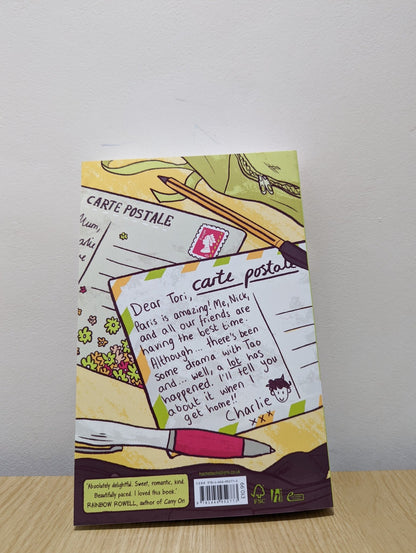 CARTE POSTALE
Mum,
carte postale
Dear Tori,
Paris is amazing! Me, Nick,
and all our friends are
having the best time.
Although... there's been
some drama with Tao
and... well, a lot has
happened. I'll tell you
about it when I
get home!!
Charlie
xxx
'Absolutely delightful. Sweet, romantic, kind.
Beautifully paced. I loved this book.'
RAINBOW ROWELL, author of Carry On
FSC